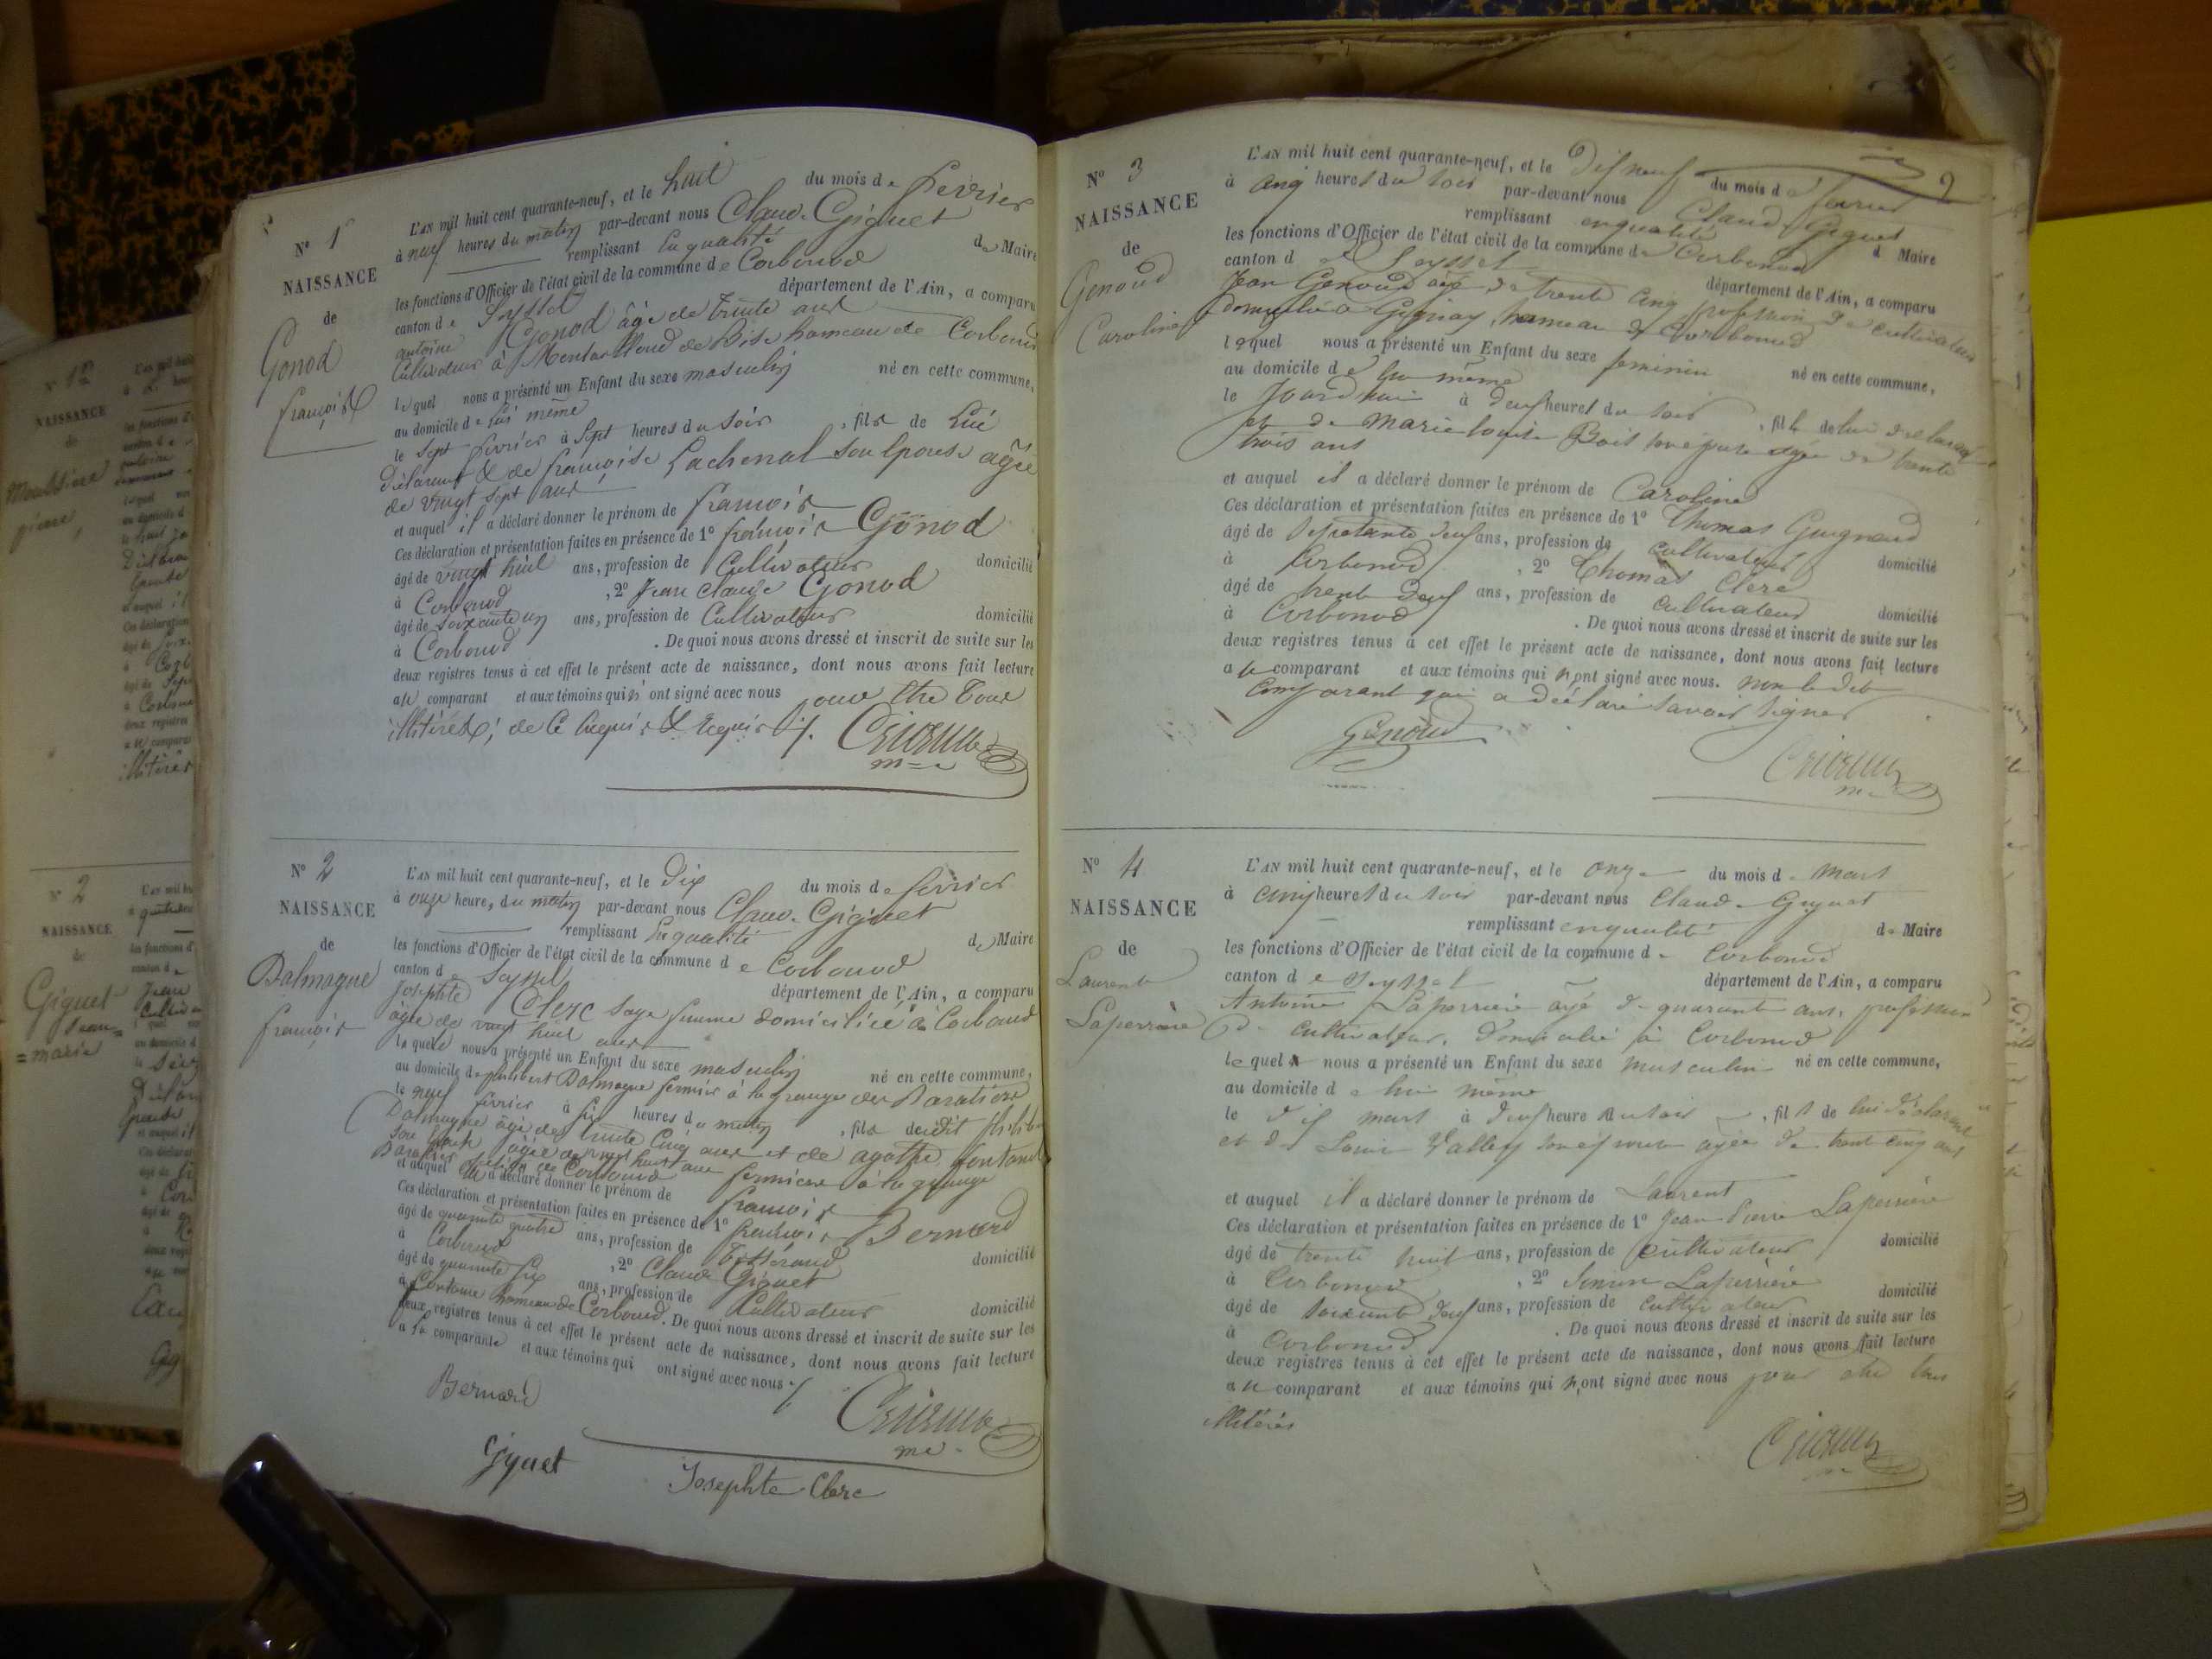 N° 1
NAISSANCE
de
Gonod
françois
L'AN mil huit cent quarante-neuf, et le huit du mois de fevrier
à neuf heures du matin par-devant nous Claude Giguet
remplissant en qualité de Maire
les fonctions d'Officier de l'état civil de la commune de Corbonod
canton de Seyssel département de l'Ain, a comparu
antoine Gonod âgé de trente ans
Cultivateur à de Bise hameau de Corbonod
lequel nous a présenté un Enfant du sexe masculin né en cette commune,
au domicile de lui même
le sept fevrier à sept heures du soir , fils de lui
Déclarant & de françoise Lachenal son épouse âgée
de vingt sept ans
et auquel il a déclaré donner le prénom de françois
Ces déclaration et présentation faites en présence de 1° françois Gonod
âgé de vingt huit ans, profession de Cultivateur domicilié
à Corbonod , 2° Jean Claude Gonod
âgé de soixante un ans, profession de Cultivateur domicilié
à Corbonod . De quoi nous avons dressé et inscrit de suite sur les
deux registres tenus à cet effet le présent acte de naissance, dont nous avons fait lecture
au comparant et aux témoins qui n'ont signé avec nous pour être tous
illitérés, de ce enquis & requis ./.
N° 2
NAISSANCE
de
Dalmagne
françois
L'AN mil huit cent quarante-neuf, et le dix du mois de fevrier
à onze heure, du matin par-devant nous Claude Giguet
remplissant en qualité de Maire
les fonctions d'Officier de l'état civil de la commune de Corbonod
canton de Seyssel département de l'Ain, a comparu
Josephte Clerc sage femme domiciliée à Corbonod
âgée de vingt huit ans
laquelle nous a présenté un Enfant du sexe masculin né en cette commune,
au domicile de philibert Dalmagne fermier à la grange des Baratiers
le neuf fevrier à six heures du matin , fils de dit philibert
Dalmagne âgé de trente cinq ans et de agathe fontanel
son épouse âgée de vingt huit ans fermiere à la grange
Baratier de Corbonod
et auquel elle a déclaré donner le prénom de françois
Ces déclaration et présentation faites en présence de 1° françois Bernard
âgé de quarante quatre ans, profession de Tisserand domicilié
à Corbonod , 2° Claude Giguet
âgé de quarante six ans, profession de Cultivateur domicilié
à hameau de Corbonod. De quoi nous avons dressé et inscrit de suite sur les
deux registres tenus à cet effet le présent acte de naissance, dont nous avons fait lecture
a la comparante et aux témoins qui ont signé avec nous ./.
Bernard
Giguet
Josephte Clerc
N° 3
NAISSANCE
de
Genoud
Caroline
2
L'AN mil huit cent quarante-neuf, et le Dixneuf du mois de fevrier
à cinq heures du soir par-devant nous Claude Giguet
remplissant en qualité d Maire
les fonctions d'Officier de l'état civil de la commune de Corbonod
canton de Seyssel département de l'Ain, a comparu
Jean Genoud âgé de trente cinq profession de cultivateur
Domicilié à Gignay, hameau de Corbonod
lequel nous a présenté un Enfant du sexe feminin né en cette commune,
au domicile de lui même
le jourd'hui à deux heures du soir , fille de lui declarant
et de Marie louise Boit son épouse agée de trente
trois ans
et auquel il a déclaré donner le prénom de Caroline
Ces déclaration et présentation faites en présence de 1° Thomas
âgé de ans, profession de cultivateur domicilié
à Corbonod , 2° Thomas Clerc
âgé de ans, profession de cultivateur domicilié
à Corbonod . De quoi nous avons dressé et inscrit de suite sur les
deux registres tenus à cet effet le présent acte de naissance, dont nous avons fait lecture
au comparant et aux témoins qui n'ont signé avec nous. non le dit
Comparant qui a déclaré savoir signer
Genoud
N° 4
NAISSANCE
de
Laurent
Laperriere
L'AN mil huit cent quarante-neuf, et le onze du mois de Mars
à cinq heures du soir par-devant nous Claude Giguet
remplissant en qualité de Maire
les fonctions d'Officier de l'état civil de la commune de Corbonod
canton de Seyssel département de l'Ain, a comparu
Antoine Laperriere âgé de quarante ans, profession
de cultivateur, domicilié à Corbonod
lequel nous a présenté un Enfant du sexe masculin né en cette commune,
au domicile de lui même
le dix mars à deux heure du soir , fils de lui déclarant
et de Louise Vallet son epouse agée de trente cinq ans
et auquel il a déclaré donner le prénom de Laurent
Ces déclaration et présentation faites en présence de 1° Jean Pierre Laperriere
âgé de trente huit ans, profession de cultivateur domicilié
à Corbonod , 2° Simon Laperriere
âgé de soixante deux ans, profession de cultivateur domicilié
à Corbonod . De quoi nous avons dressé et inscrit de suite sur les
deux registres tenus à cet effet le présent acte de naissance, dont nous avons fait lecture
au comparant et aux témoins qui n'ont signé avec nous pour être tous
illitérés
N° 12
NAISSANCE
de
pierre
N° 2
NAISSANCE
de
Giguet
Jean=
=marie